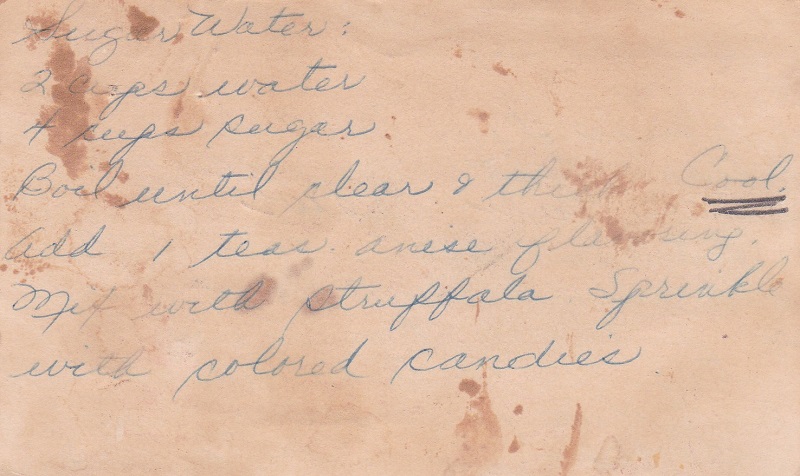 Sugar Water:
2 cups water
4 cups sugar
Boil until clear & thick Cool.
Add 1 teas. anese flavoring.
Mix with struffala Sprinkle
with colored candies